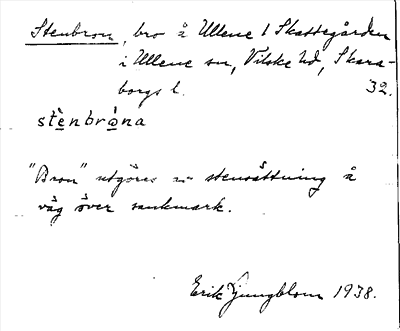 Stenbron, bro å Ullene 1 Skattegården
i Ullene sn, Vilske hd, Skara-
borgs l. 32.
stènbrona
"Bron" utgöres av stensättning å
väg över sankmark.
Erik Ljungblom 1938.